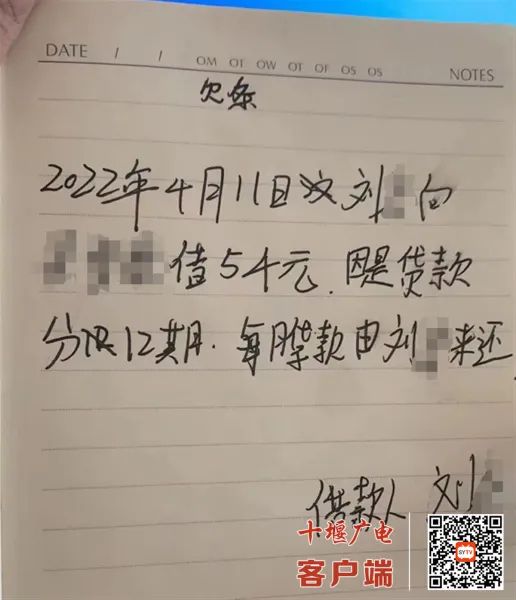 DATE / / OM OT OW OT OF OS OS NOTES
欠条
2022年4月11日 刘 向
借54元，因是贷款
分 12期．每月贷款由刘 来还
借款人 刘
十堰广电
客户端
SYTV